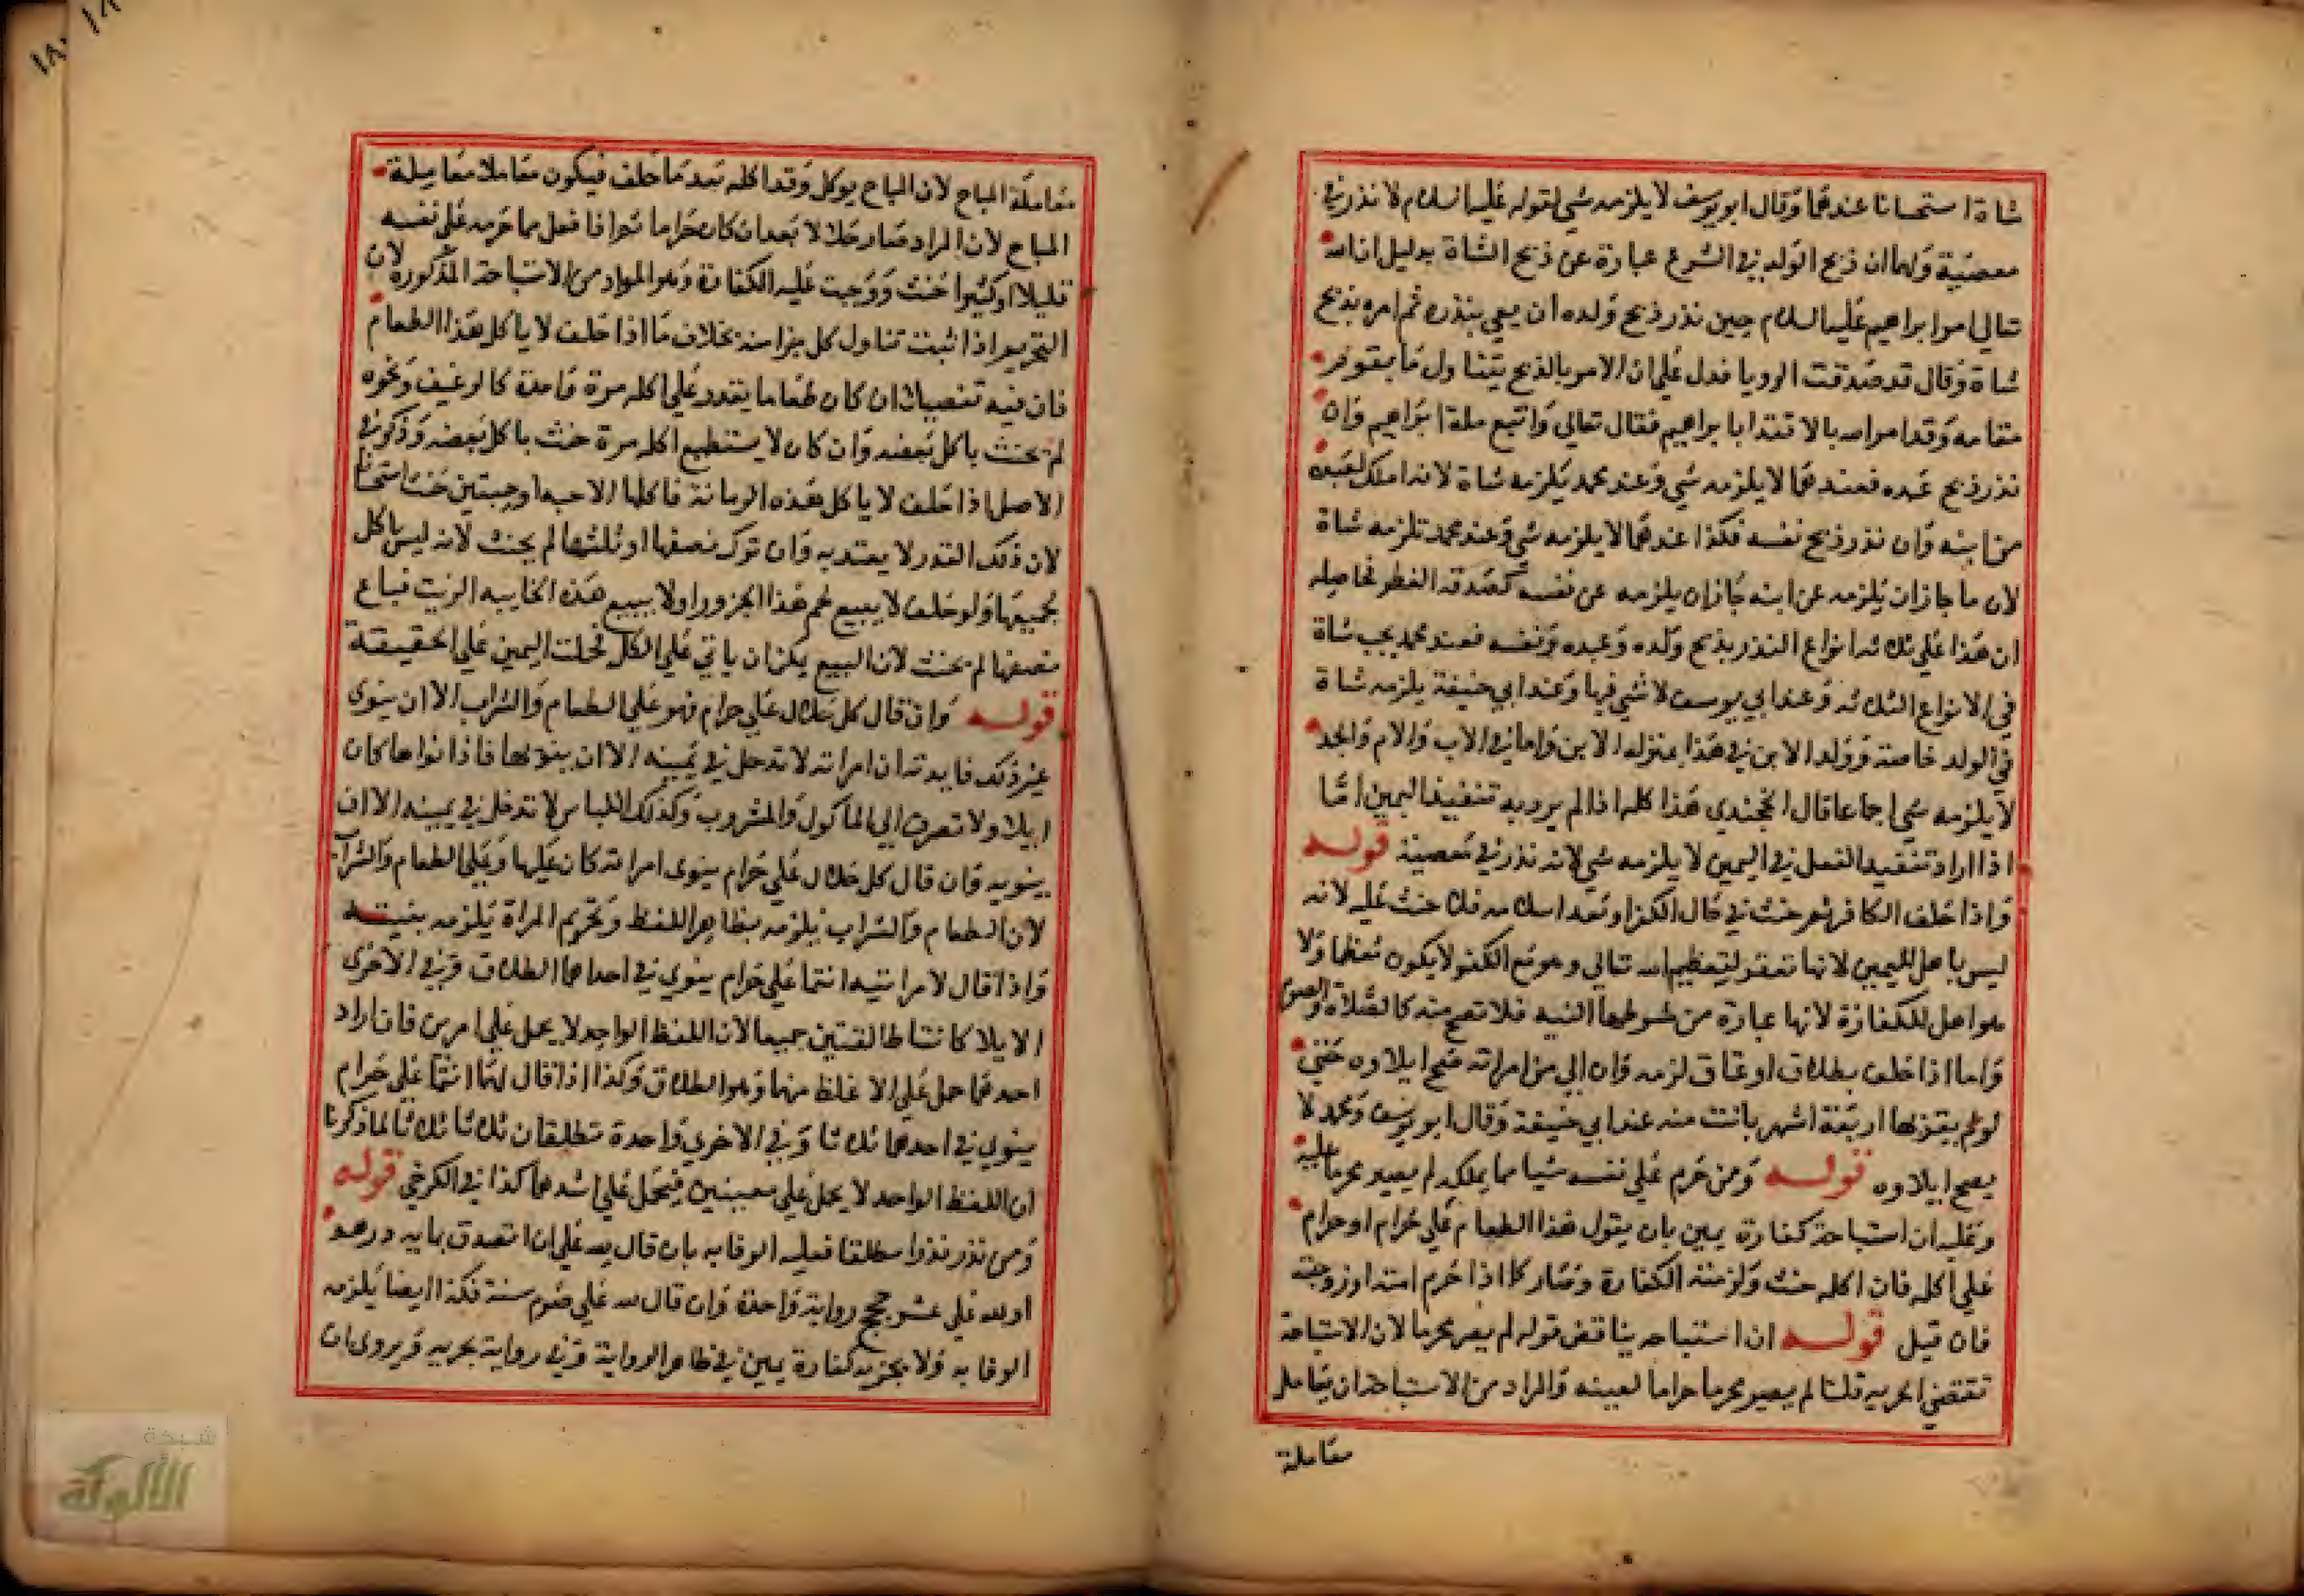 شاة استحسانا عندهما وقال ابو يوسف لا يلزمه شي لقوله عليه السلام لا نذر في
معصية ولهما ان ذبح الولد في الشرع عبارة عن ذبح الشاة بدليل ان الله
تعالي امر ابراهيم عليه السلام حين نذر ذبح ولده ان يفي بنذره ثم امره بذبح
شاة وقال قد صدقت الرويا فدل علي ان الامر بالذبح يتناول ما يقوم
مقامه وقد امر الله بالاقتدا بابراهيم فقال تعالي واتبع ملة ابراهيم وان
نذر ذبح عبده فعندهما لا يلزمه شي وعند محمد يلزمه شاة لانه املك لعبده
من ابنه وان نذر ذبح نفسه فكذا عندهما لا يلزمه شي وعند محمد تلزمه شاة
لان ما جاز ان يلزمه عن ابنه جاز ان يلزمه عن نفسه كصدقة الفطر فحاصله
ان هذا علي ثلاثه انواع النذر بذبح ولده وعبده ونفسه فعند محمد يجب شاة
في الانواع الثلاثه وعند ابي يوسف لا شي فيها وعند ابي حنيفة يلزمه شاة
في الولد خاصة وولد الابن في هذا بمنزله الابن واما في الاب والام والجد
لا يلزمه شي اجماعا قال الخجندي هذا كله اذا لم يرد به تنفيذ اليمين اما
اذا اراد تنفيذ الفعل في اليمين لا يلزمه شي لانه نذر في معصية قوله
واذا حلف الكافر ثم حنث في حال الكفر او بعد اسلامه فلا حنث عليه لانه
ليس باهل لليمين لانها تعقد لتعظيم الله تعالي ومع الكفر لا يكون معظما ولا
هو اهل للكفارة لانها عبارة من شرطها النيه فلا تصح منه كالصلاة والصوم
واما اذا حلف بطلاق او عتاق لزمه وان الي من امراته صح ايلاوه حتي
لو لم يقربها اربعة اشهر بانت منه عند ابي حنيفة وقال ابو يوسف ومحمد لا
يصح ايلاوه قوله ومن حرم علي نفسه شيا مما يملكه لم يصير محرما عليه
وعليه ان استباحه كفارة يمين بان يقول هذا الطعام علي حرام او حرام
علي اكله فان اكله حنث ولزمته الكفارة وصار كما اذا حرم امته او زوجته
فان قيل قوله ان استباحه يناقض قوله لم يصر محرما لان الاستباحة
تقتضي الحرميه قلنا لم يصير محرما حراما لعينه والمراد من الاستباحة ان يعامله
معاملة
معاملة المباح لان المباح يوكل وقد اكله بعد ما حلف فيكون معاملا معاملة
المباح لان المراد صار حلالا بعد ان كان حراما ثم اذا فعل مما حرمه علي نفسه
قليلا او كثيرا حنث ووجبت عليه الكفارة وهو المراد من الاستباحة المذكوره لان
التحريم اذا ثبت تناول كل جزا منه بخلاف ما اذا حلف لا ياكل هذا الطعام
فان فيه تفصيلا ان كان طعاما يقدر علي اكله مرة واحدة كالرغيف ونحوه
لم يحنث باكل بعضه وان كان لا يستطيع اكله مرة حنث باكل بعضه وذكر في
الاصل اذا حلف لا ياكل هذه الرمانة فاكلها الا حبه او حبتين حنث استحسانا
لان ذلك القدر لا يعتد به وان ترك نصفها او ثلثها لم يحنث لانه ليس باكل
لجميعها ولو حلف لا يبيع لحم هذا الجزور او لا يبيع هذه الخابيه الزيت فباع
نصفها لم يحنث لان البيع يمكن ان ياتي علي الكل فحملت اليمين علي الحقيقة
قوله وان قال كل حلال علي حرام فهو علي الطعام والشراب الا ان ينوي
غير ذلك فايدته ان امراته لا تدخل في يمينه الا ان ينويها فاذا نواها كان
ايلا ولا تصرف الي الماكول والمشروب وكذلك اللباس لا تدخل في يمينه الا ان
ينويه وان قال كل حلال علي حرام ينوي امراته كان عليها وعلي الطعام والشراب
لان الطعام والشراب يلزمه بظاهر اللفظ وتحريم المراة يلزمه بنيته
واذا قال لامراتيه انتما علي حرام ينوي في احداهما الطلاق وفي الاخرى
الايلا كانتا طالقتين جميعا لان اللفظ الواحد لا يحمل علي امرين فان اراد
احدهما حمل علي الاغلظ منهما وهو الطلاق وكذا اذا قال لهما انتما علي حرام
ينوي في احدهما ثلاثا وفي الاخري واحدة تطلقان ثلاثا ثلاثا لما ذكرنا
ان اللفظ الواحد لا يحمل علي معنيين فيحمل علي اشدهما كذا في الكرخي قوله
ومن نذر نذرا مطلقا فعليه الوفا به بان قال لله علي ان اتصدق بمايه درهم
او لله علي عشر حجج رواية واحدة وان قال لله علي صوم سنة فكذا ايضا يلزمه
الوفا به ولا يجزيه كفارة يمين في ظاهر الرواية وفي رواية يجزيه ويروى ان
شبكة
الألوكة